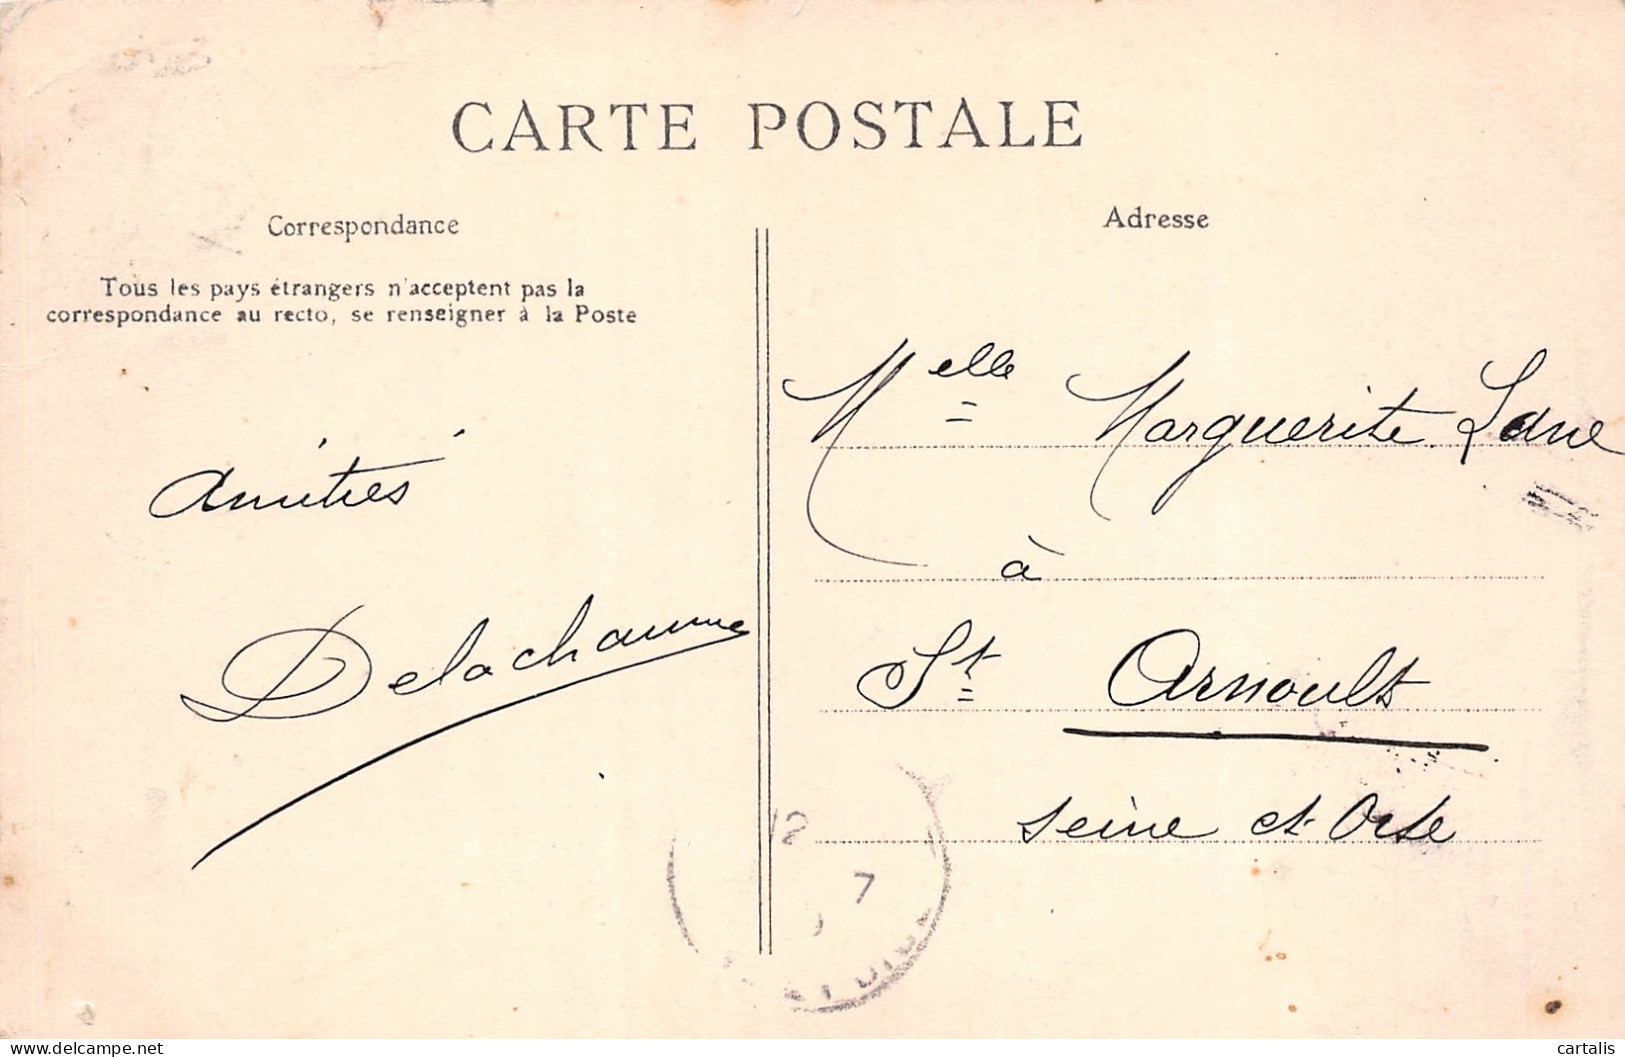 CARTE POSTALE
Correspondance
Tous les pays étrangers n'acceptent pas la
correspondance au recto, se renseigner à la Poste
Amitiés
Delachaume
Adresse
Melle Marguerite Lane
à
St Arnoult
Seine et Oise
12
7
www.delcampe.net
cartalis